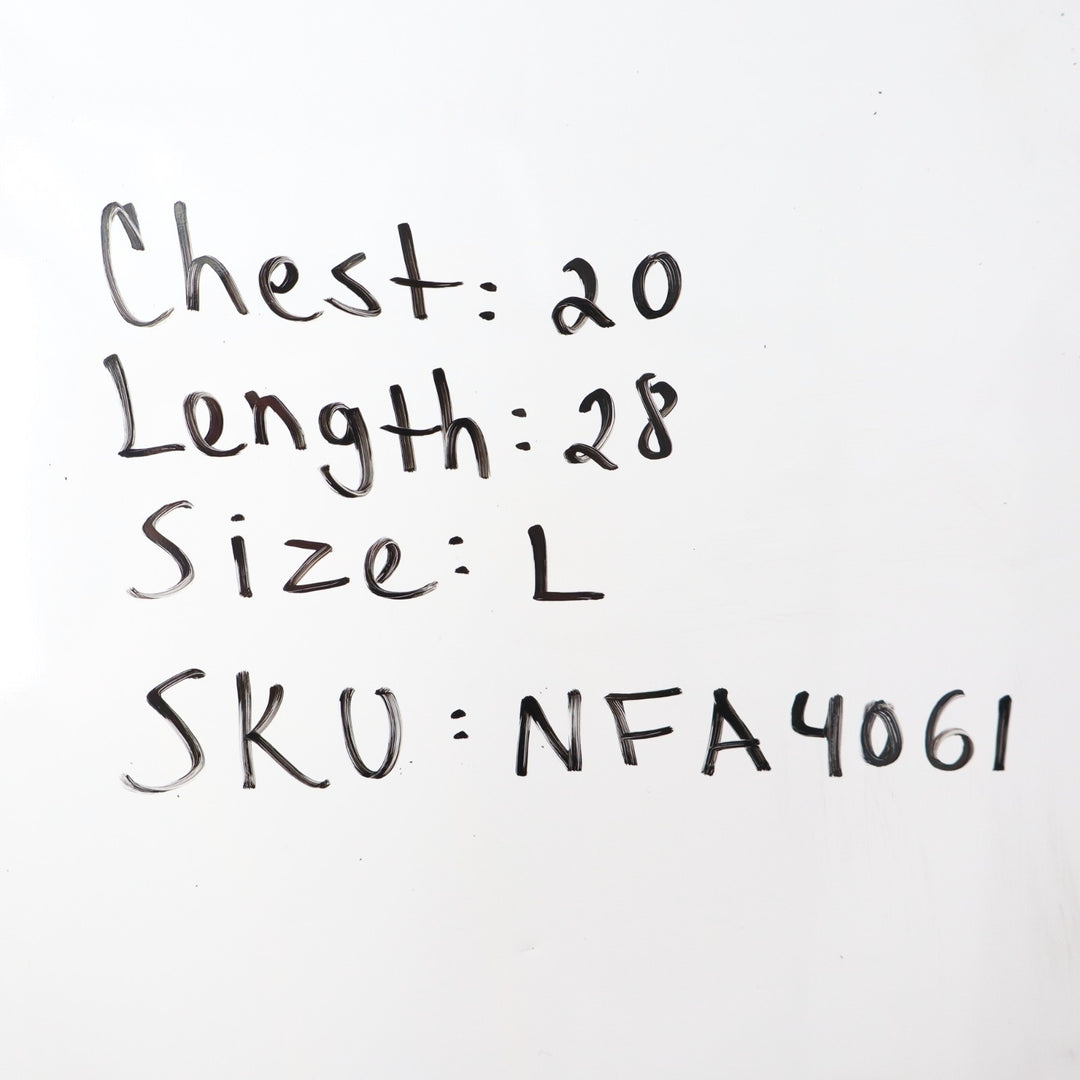 Chest: 20
Length: 28
Size: L
SKU: NFA4061